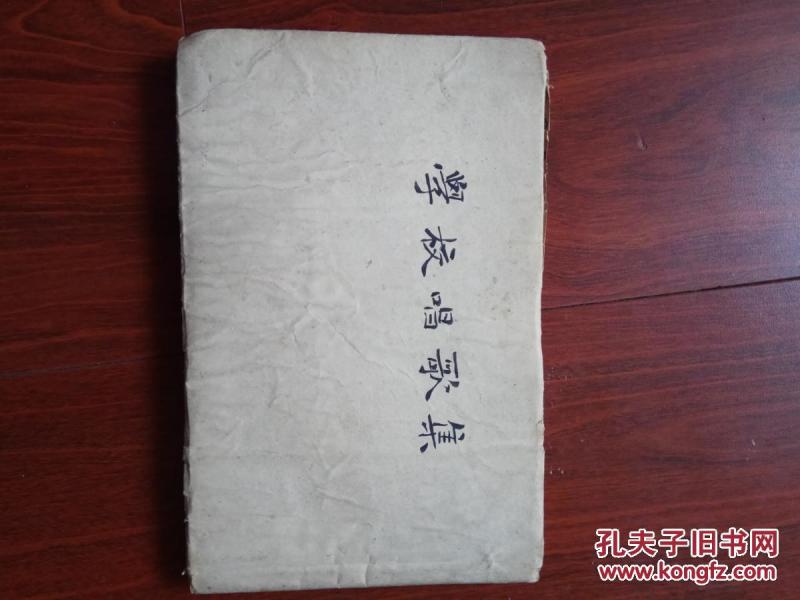 學校唱歌集
孔夫子旧书网
www.kongfz.com